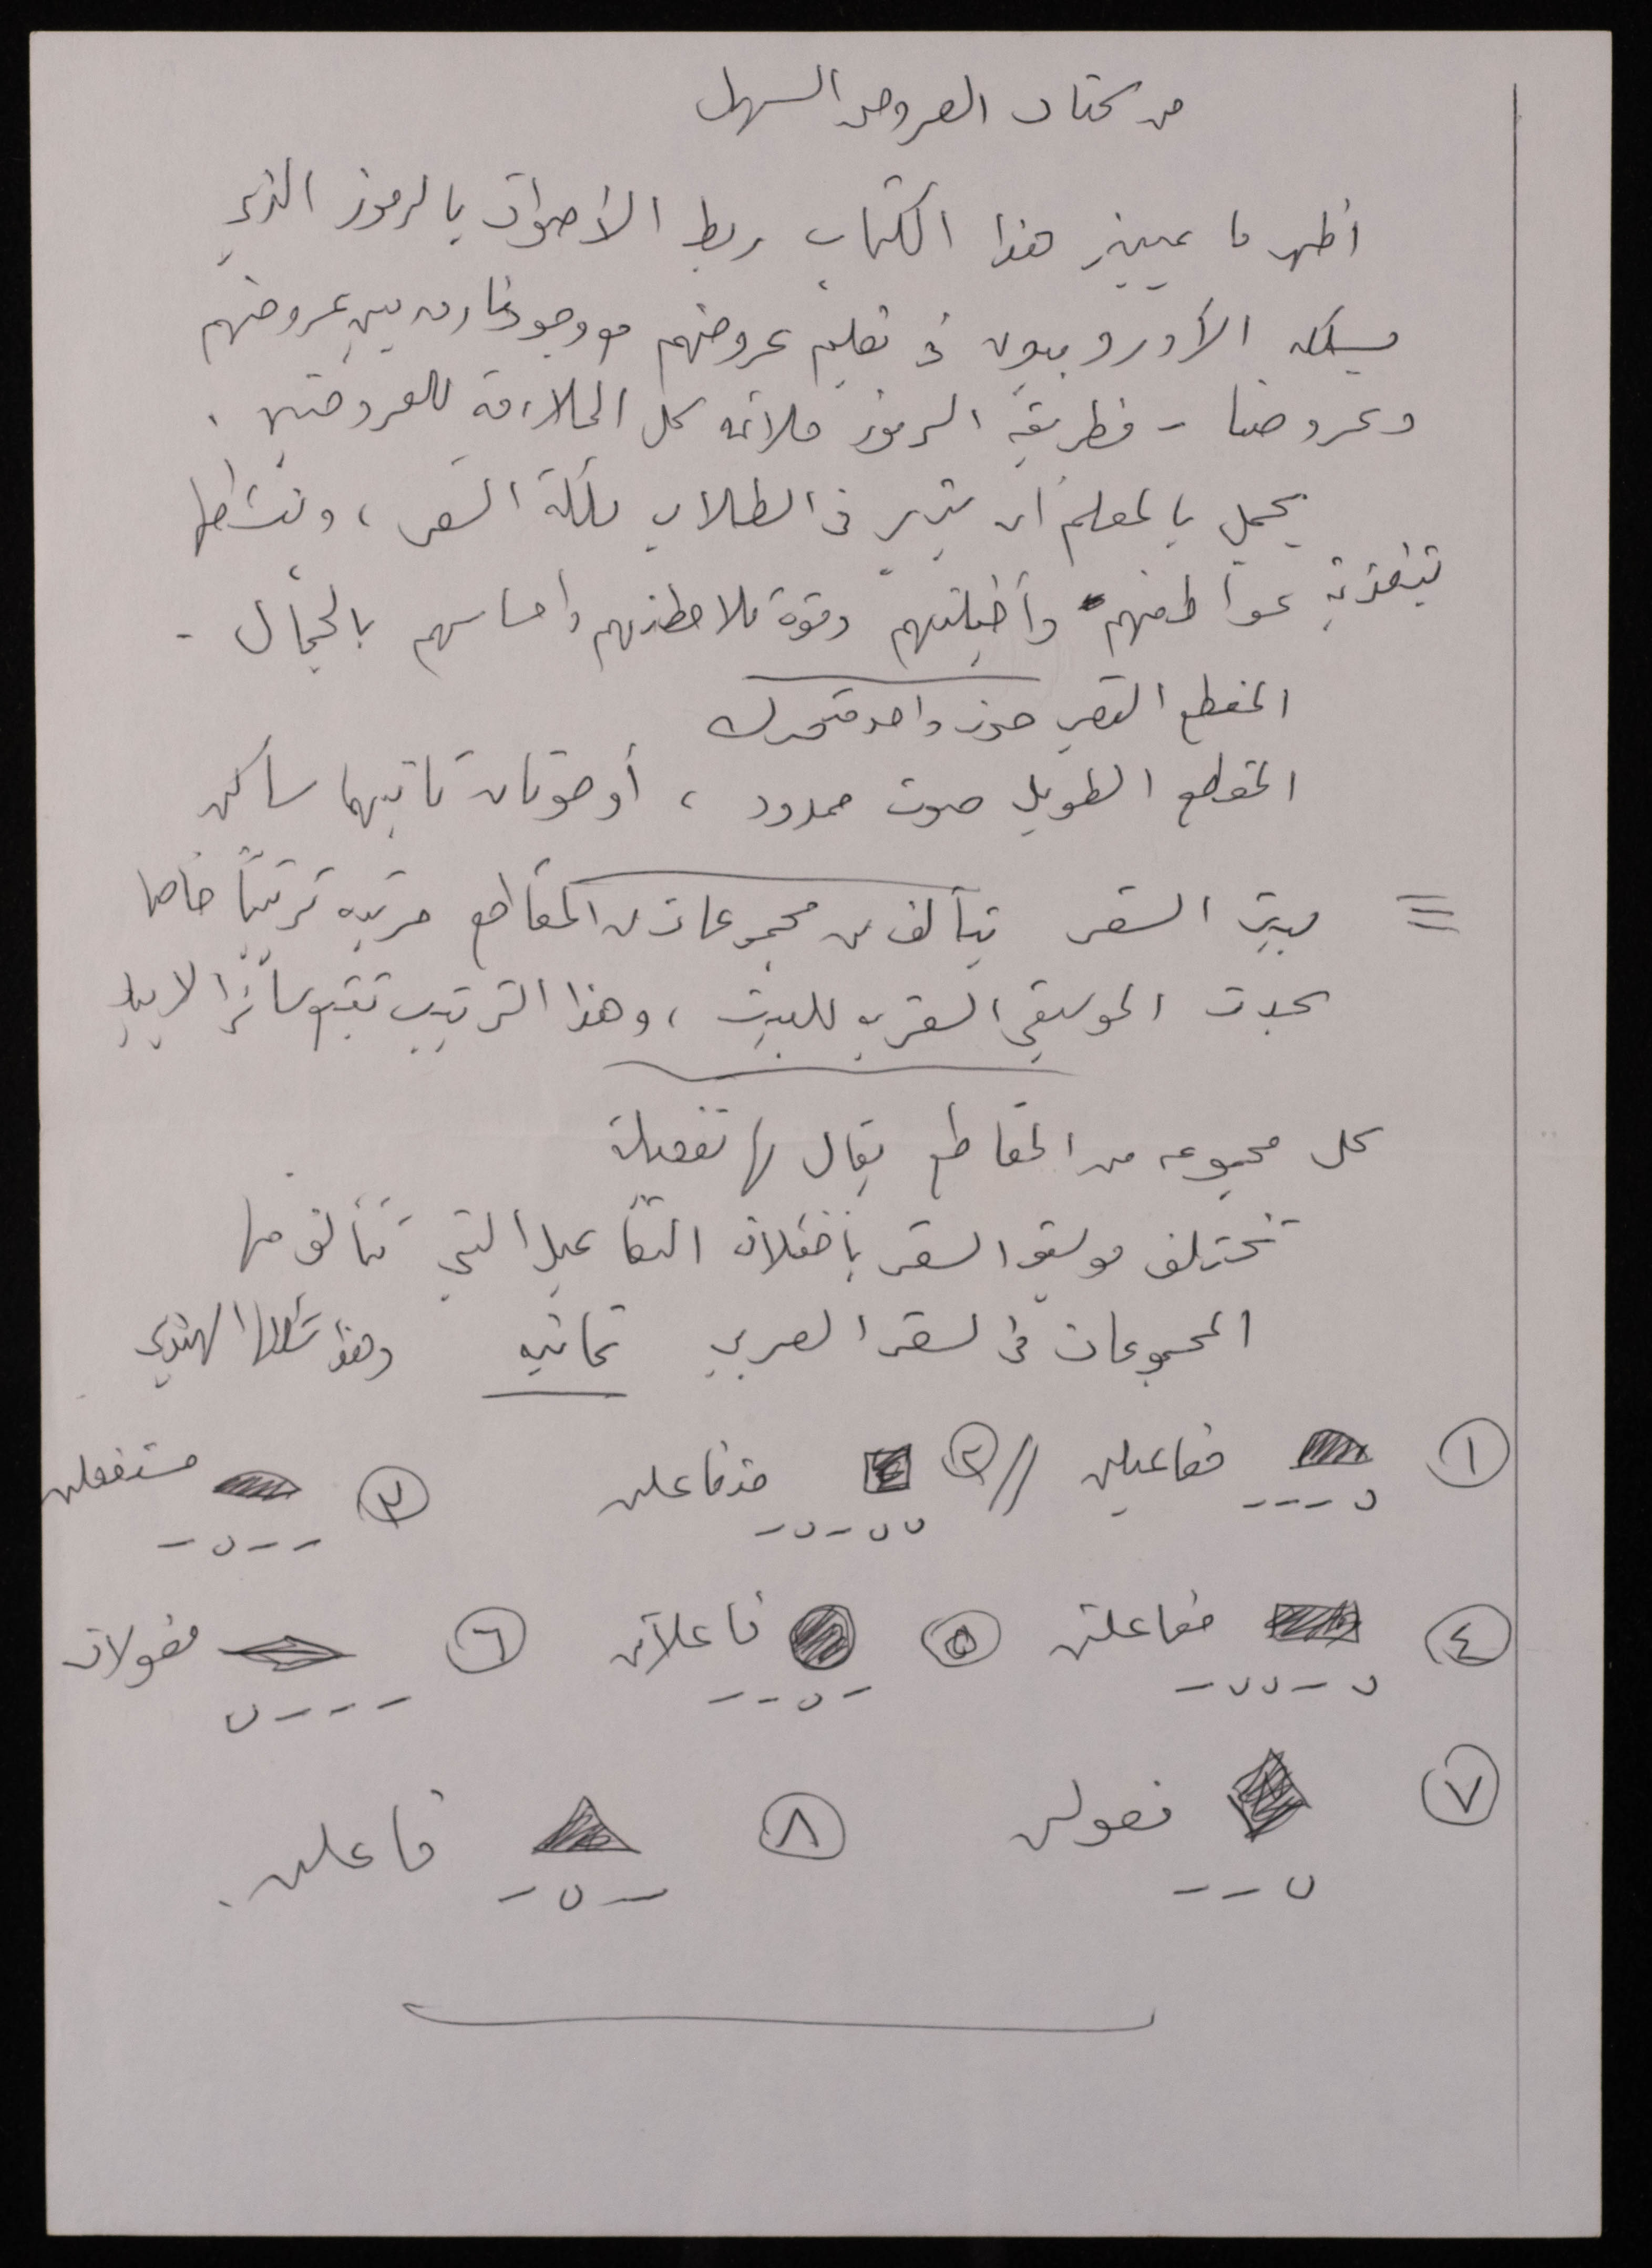 من كتاب العروض السهل
أظهر ما يميز هذا الكتاب ربط الأصوات بالرموز الذي
يسلكه الأوروبيون في تعليم عروضهم مع وجود فارق بين عروضهم
وعروضنا - فطريقة الرموز ملائمة كل الملاءمة للعروضين .
يجمل بالمعلم أن يثير في الطلاب ملكة الشعر ، وينشطها
بتغذية عواطفهم وأخيلتهم وقوة ملاحظتهم وإحساسهم بالجمال -
المقطع القصير صوت واحد متحرك
المقطع الطويل صوت ممدود ، أو صوتان ثانيهما ساكن
بيت الشعر يتألف من مجموعات من المقاطع مرتبه ترتيباً خاصا
يحدث الموسيقي الشعريه للبيت ، وهذا الترتيب تتبع سائر الأبيات
كل مجموعه من المقاطع يقال لها تفعيلة
تختلف موسيقى الشعر باختلاف التفاعيل التي تتألف منها
المجموعات في الشعر العربي ثمانيه وهذا شكلها الهندي
١ مفاعيلن // ٢ متفاعلن ٣ مستفعلن
ں - - - ں ں - ں - - - ں -
٤ مفاعلتن ٥ فاعلاتن ٦ مفعولات
ں - ں ں - - ں - - - - - ں
٧ فعولن ٨ فاعلن .
ں - - - ں -